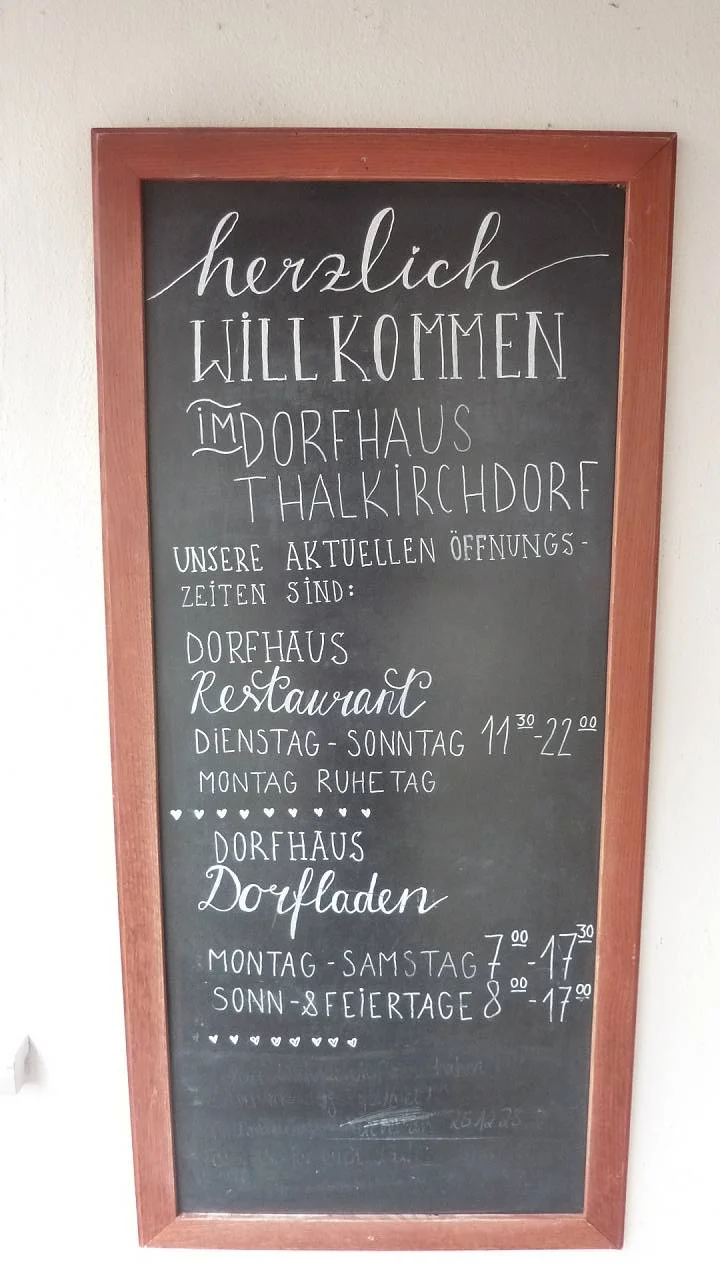 herzlich
WILLKOMMEN
IM DORFHAUS
THALKIRCHDORF
UNSERE AKTUELLEN ÖFFNUNGS-
ZEITEN SIND:
DORFHAUS
Restaurant
DIENSTAG - SONNTAG 11³⁰-22⁰⁰
MONTAG RUHETAG
DORFHAUS
Dorfladen
MONTAG - SAMSTAG 7⁰⁰-17³⁰
SONN-&FEIERTAGE 8⁰⁰-17⁰⁰
25.12.23